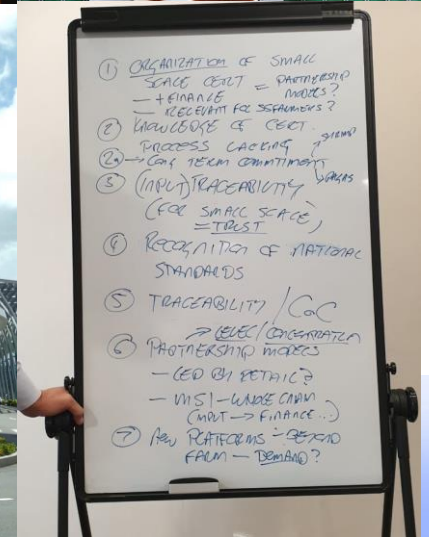 ① ORGANIZATION OF SMALL
SCALE CERT = PARTNERSHIP
MODELS?
— + FINANCE
— RELEVANT FOR SSFARMERS?
② KNOWLEDGE OF CERT.
PROCESS LACKING
②a → LONG TERM COMMITMENT
③ (INPUT) TRACEABILITY
(FOR SMALL SCALE)
= TRUST
④ RECOGNITION OF NATIONAL
STANDARDS
⑤ TRACEABILITY / CoC
→ LEVEL / CONCENTRATION
⑥ PARTNERSHIP MODELS
— LED BY RETAIL?
— MSI — WHOLE CHAIN
(INPUT → FINANCE...)
⑦ NEW PLATFORMS — BEYOND
FARM — DEMAND?